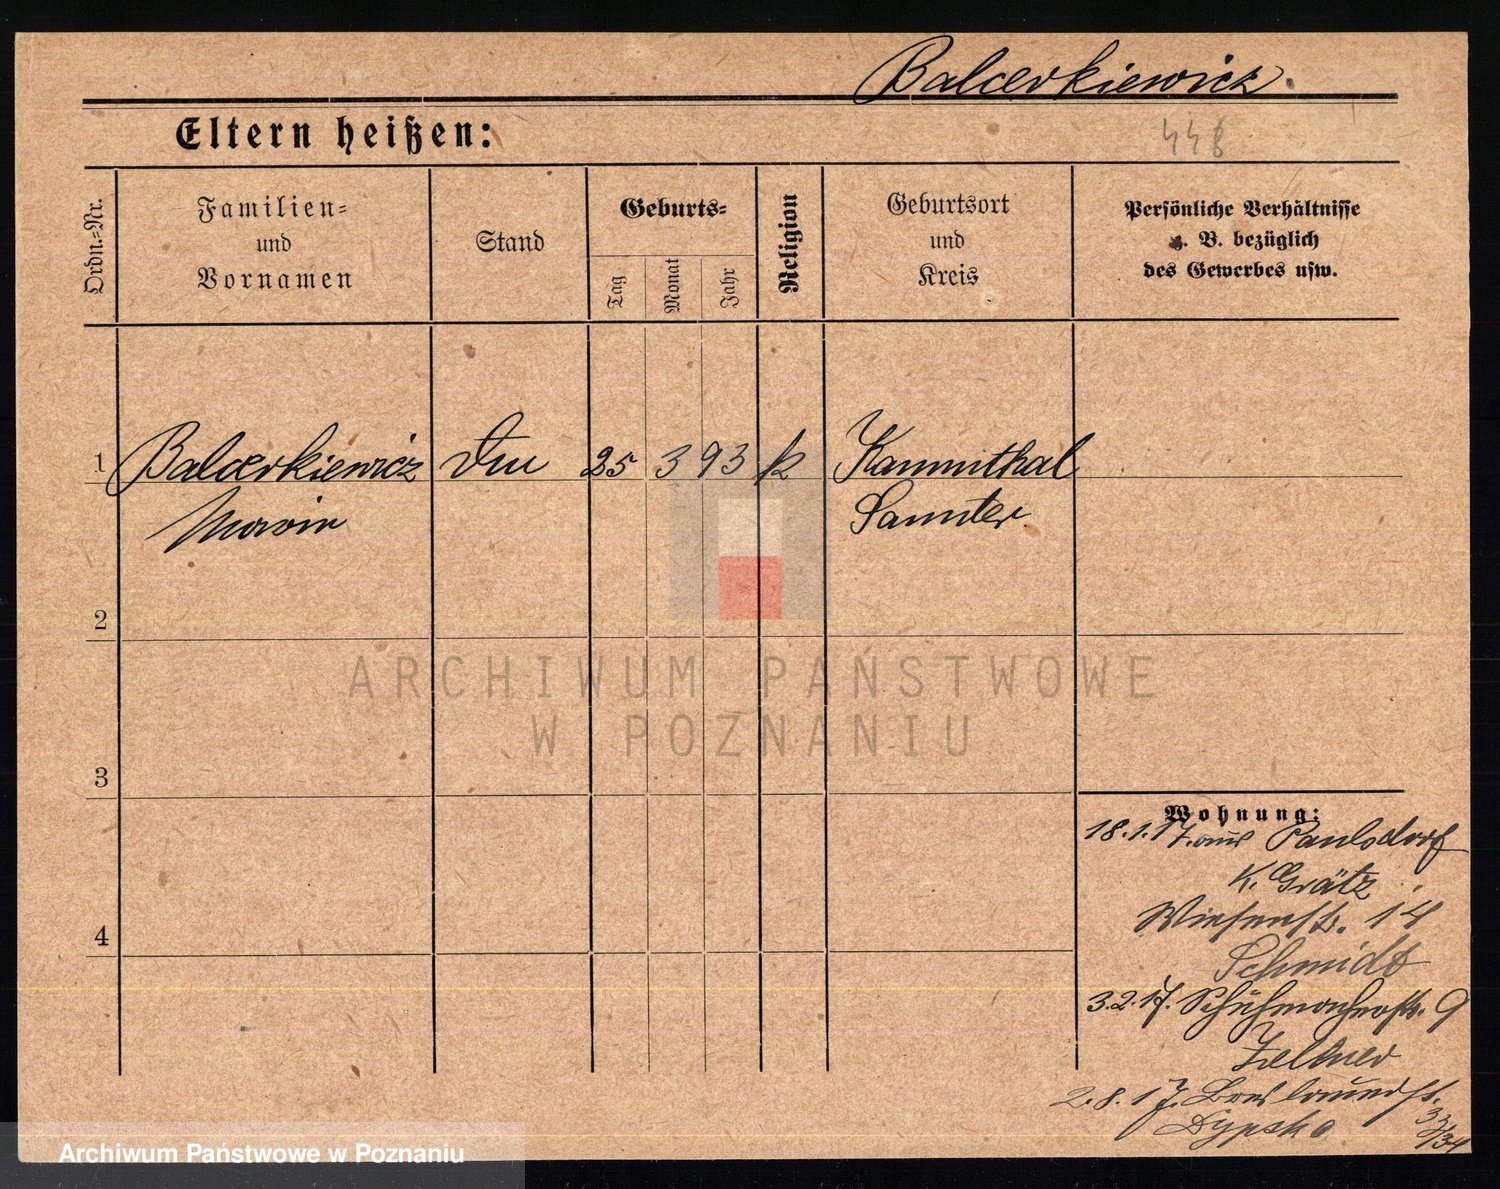 Balcerkiewicz.
Eltern heißen:
448
Ordn.=Nr.
Familien=
und
Vornamen
Stand
Geburts=
Tag
Monat
Jahr
Religion
Geburtsort
und
Kreis
Persönliche Verhältnisse
z. B. bezüglich
des Gewerbes usw.
1 Balcerkiewicz 25 3 93 k Kammthal
Samter
2
ARCHIWUM PAŃSTWOWE
W POZNANIU
3
Wohnung:
18.1.17. aus Paulsdorf
K. Grätz
Wiesenstr. 14
4
Schmidt
3.2.17. Schuhmacherstr. 9
Zeltner
2.8.17. Breslauerstr.
33/34
Archiwum Państwowe w Poznaniu